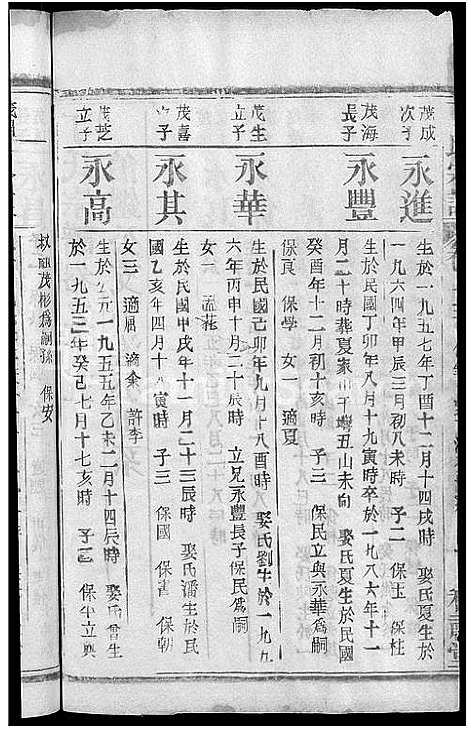 茂成次子
永進
生於一九五七年丁酉十二月十四戌時 娶氏夏生於
一九六四年甲辰三月初八未時 子二 保玉 保柱
茂海長子
永豐
生於民國丁卯年八月十九寅時卒於一九八六年十一
月二十時葬夏家山 丑山未向 娶氏夏生於民國
癸酉年十二月初十亥時 子三 保民立與永華為嗣
保良 保學 女一 適夏
茂生立子
永華
生於民國己卯年九月十八酉時 娶氏劉生於一九五
六年丙申十月二十辰時 立兄永豐長子保民為嗣
女一 孟花
茂喜立子
永其
生於民國甲戌年十一月二十三辰時 娶氏潘生於民
國乙亥年四月十八寅時 子三 保國 保書 保朝
女三 適周 適余 許李
茂芝立子
永高
生於一九五五年乙未二月十四辰時 娶氏曾生
於一九五三年癸巳七月十七亥時 子二 保平立與
叔 茂彬為嗣孫 保安